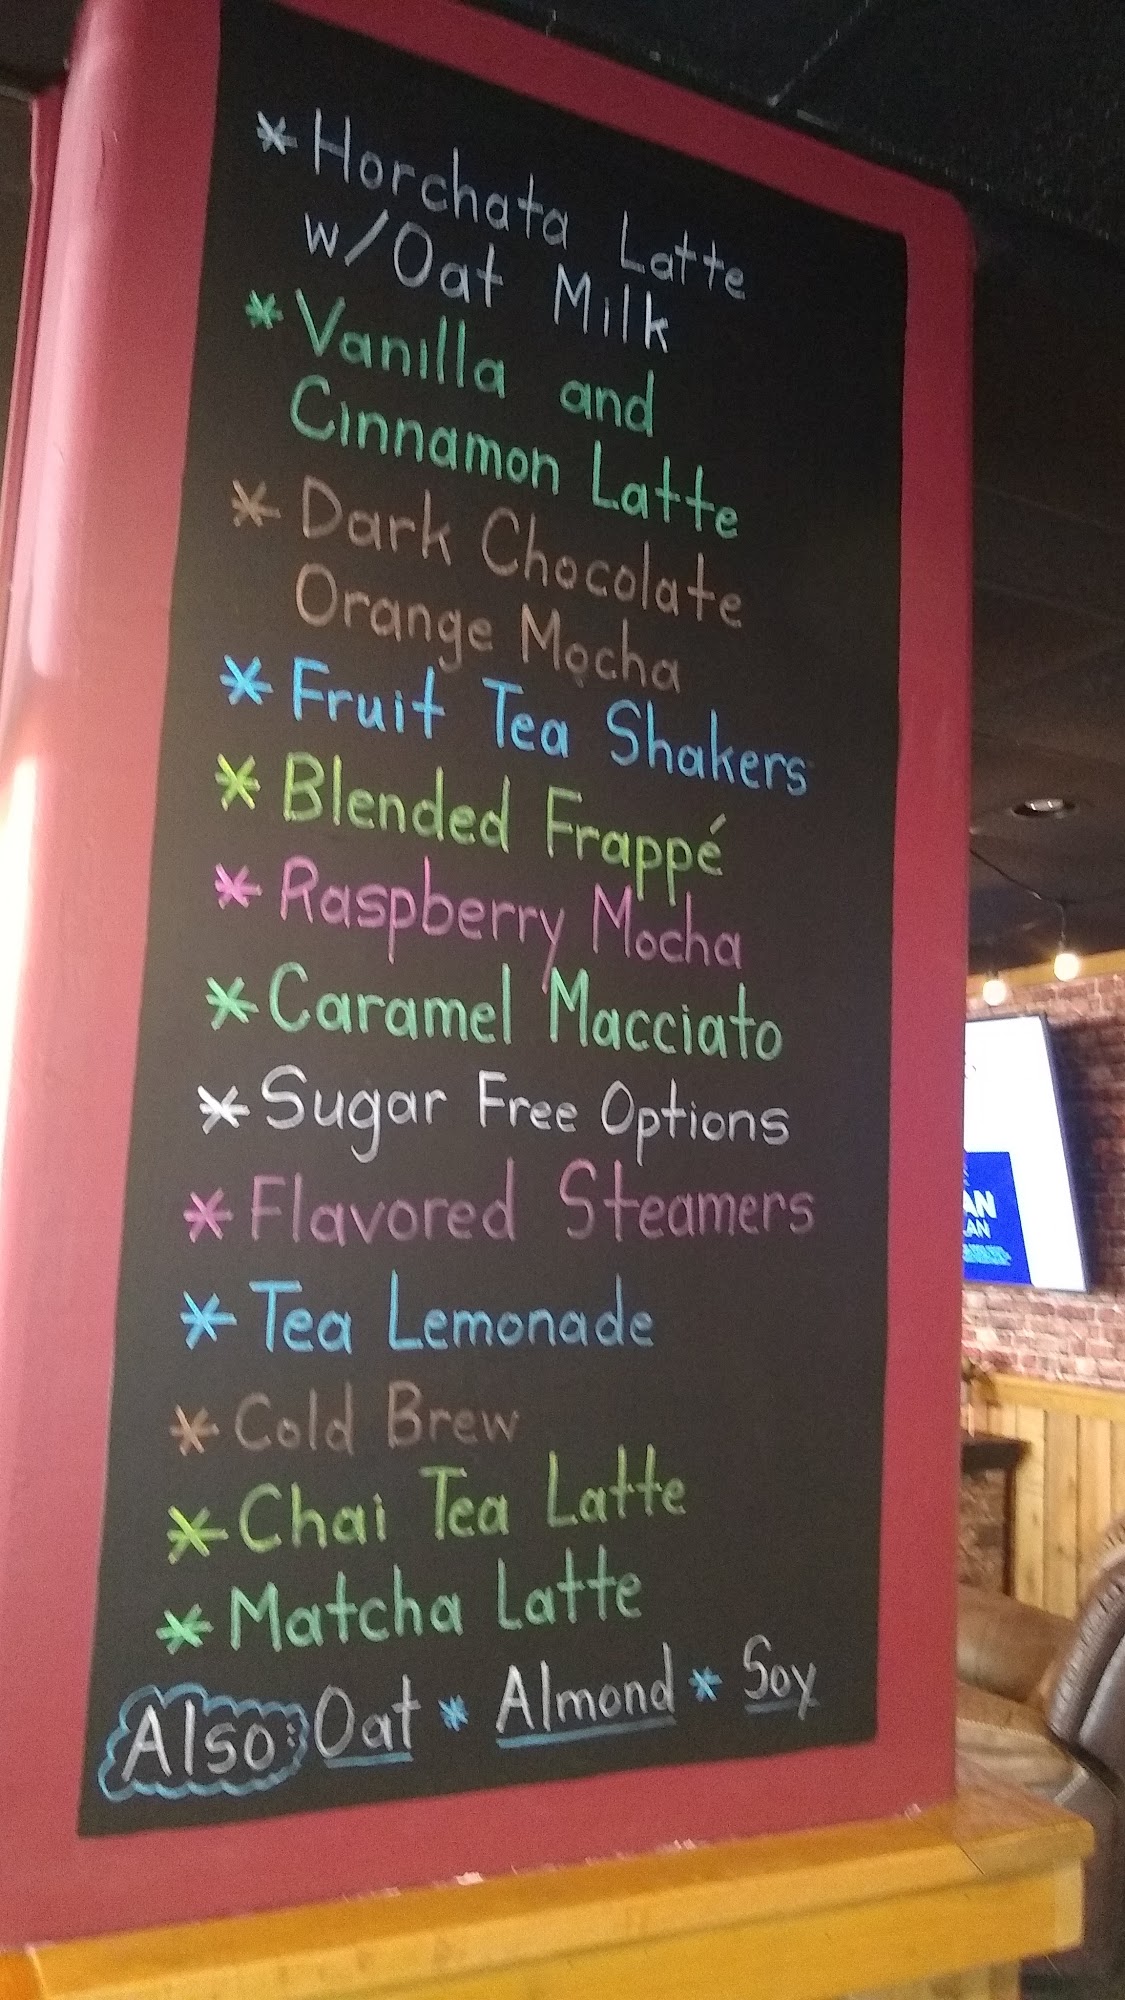 * Horchata Latte
w/Oat Milk
* Vanilla and
Cinnamon Latte
* Dark Chocolate
Orange Mocha
* Fruit Tea Shakers
* Blended Frappé
* Raspberry Mocha
* Caramel Macciato
* Sugar Free Options
* Flavored Steamers
* Tea Lemonade
* Cold Brew
* Chai Tea Latte
* Matcha Latte
Also: Oat * Almond * Soy
AN
AN